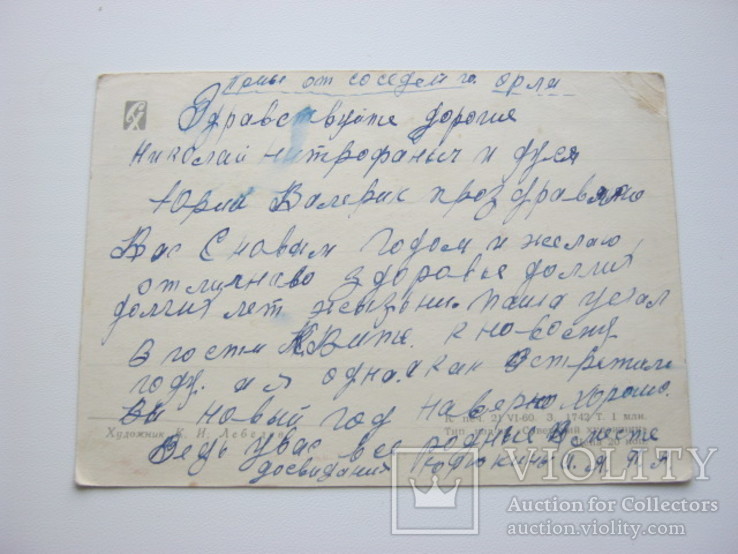 от соседей го. орла
Здравствуйте дорогие
Николай Митрофаныч и Дуся
Юрий Валерик проздравляю
Вас С новым годом и желаю
отличнаво здоровье долгих
долгих лет жызни. Паша уехал
В гости К Вите. к новому
году. а я одна. как Встретили
Вы новый год наверно хорошо.
Ведь у вас все родные Вместе
досвидания
Художник К. И. Лебедев
К печ. 21/VI-60. З. 1742 Т. 1 млн.
VIOLITY
Auction for Collectors
auction.violity.com